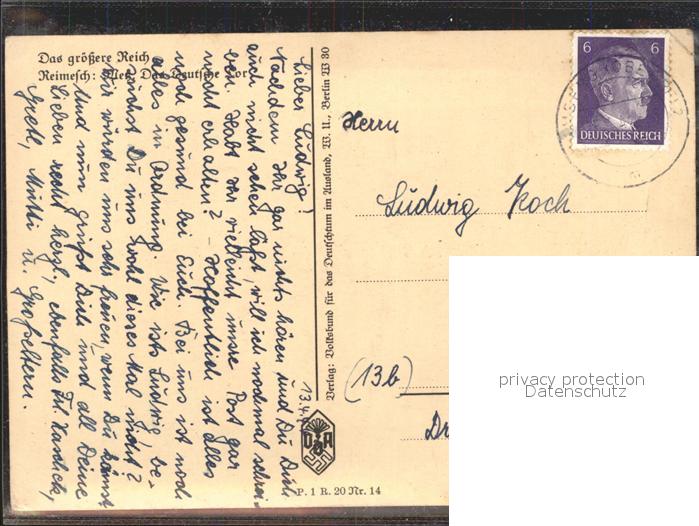 Das größere Reich
Reimesch: Metz, Das Deutsche Tor
Lieber Ludwig!
Nachdem Ihr gar nichts hören und Du Dich
auch nicht sehen läßt, will ich nochmal schrei-
ben. Habt Ihr vielleicht unsre Post gar
nicht erhalten? – Hoffentlich ist alles
noch gesund bei Euch. Bei uns ist noch
alles in Ordnung. Wie ists Ludwig, be-
suchst Du uns wohl dieses Mal nicht?
Wir würden uns sehr freuen, wenn Du kämst
Und nun grüßt Dich und all Deine
Lieben recht herzl., ebenfalls Frl.
Gretl, Mutti u. Großeltern.
13.4.
Verlag: Volksbund für das Deutschtum im Ausland, W. II., Berlin W 30
VDA
P. 1 R. 20 Nr. 14
6 6
DEUTSCHES REICH
Herrn
Ludwig Koch
(13b)
privacy protection
Datenschutz